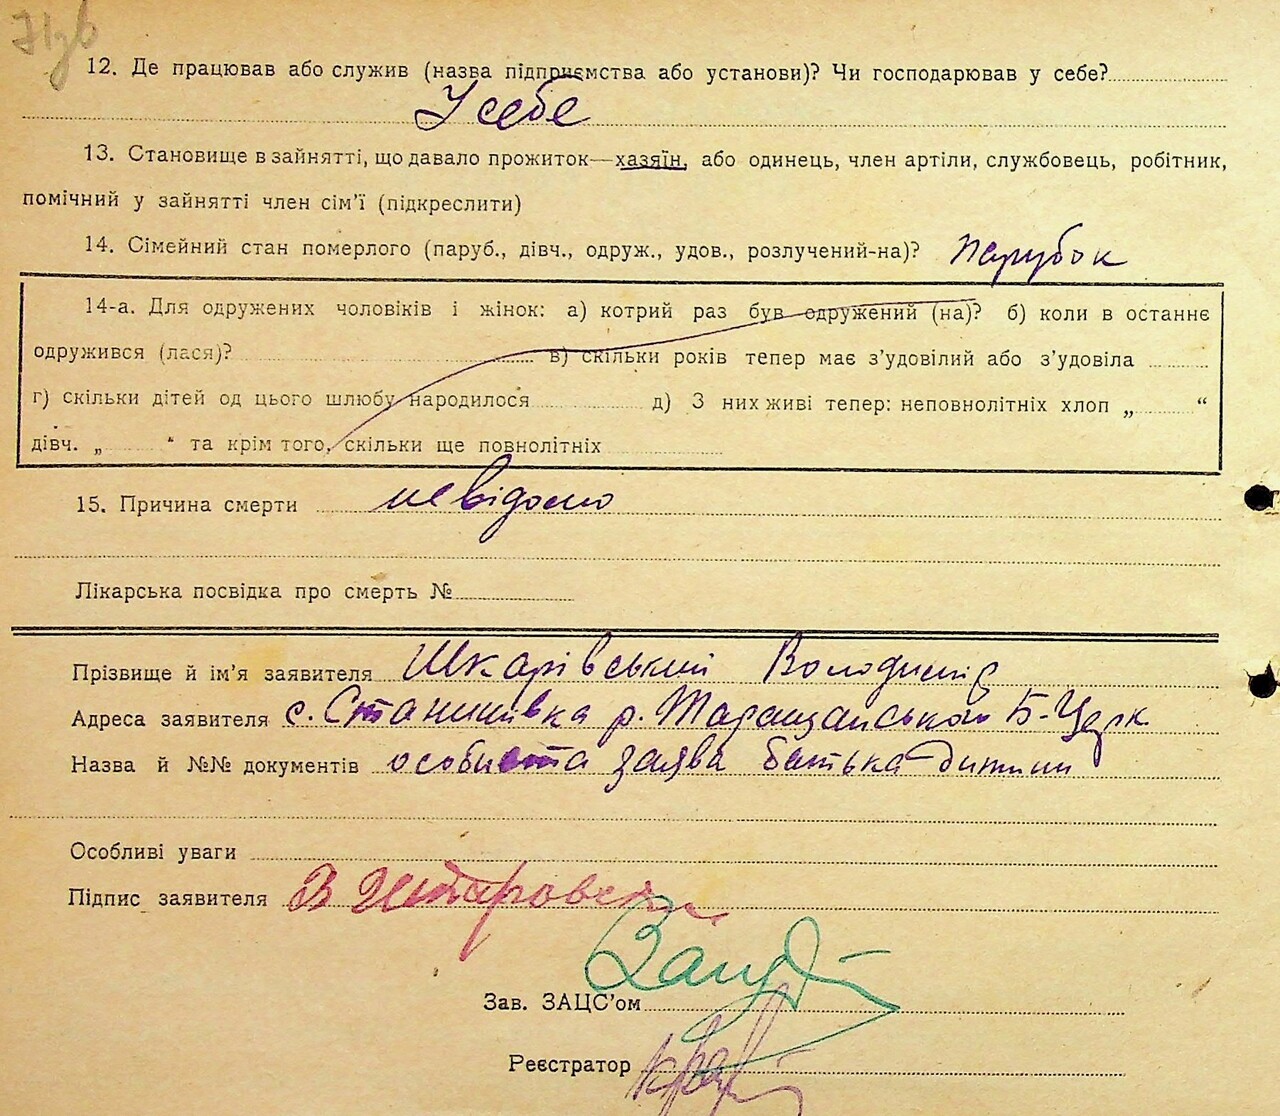 12. Де працював або служив (назва підприємства або установи)? Чи господарював у себе?
У себе
13. Становище в зайнятті, що давало прожиток—хазяїн, або одинець, член артіли, службовець, робітник,
помічний у зайнятті член сім’ї (підкреслити)
14. Сімейний стан померлого (паруб., дівч., одруж., удов., розлучений-на)? Парубок
14-а. Для одружених чоловіків і жінок: а) котрий раз був одружений (на)? б) коли в останнє
одружився (лася)? в) скільки років тепер має з’удовілий або з’удовіла
г) скільки дітей од цього шлюбу народилося д) З них живі тепер: неповнолітніх хлоп „ “
дівч. „ “ та крім того, скільки ще повнолітніх
15. Причина смерти невідомо
Лікарська посвідка про смерть №
Прізвище й ім’я заявителя Шкарівський Володимир
Адреса заявителя с. Станишівка р. Таращанського Б-Церк
Назва й №№ документів особиста заява батька дитини
Особливі уваги
Підпис заявителя В
Зав. ЗАЦС’ом
Реєстратор